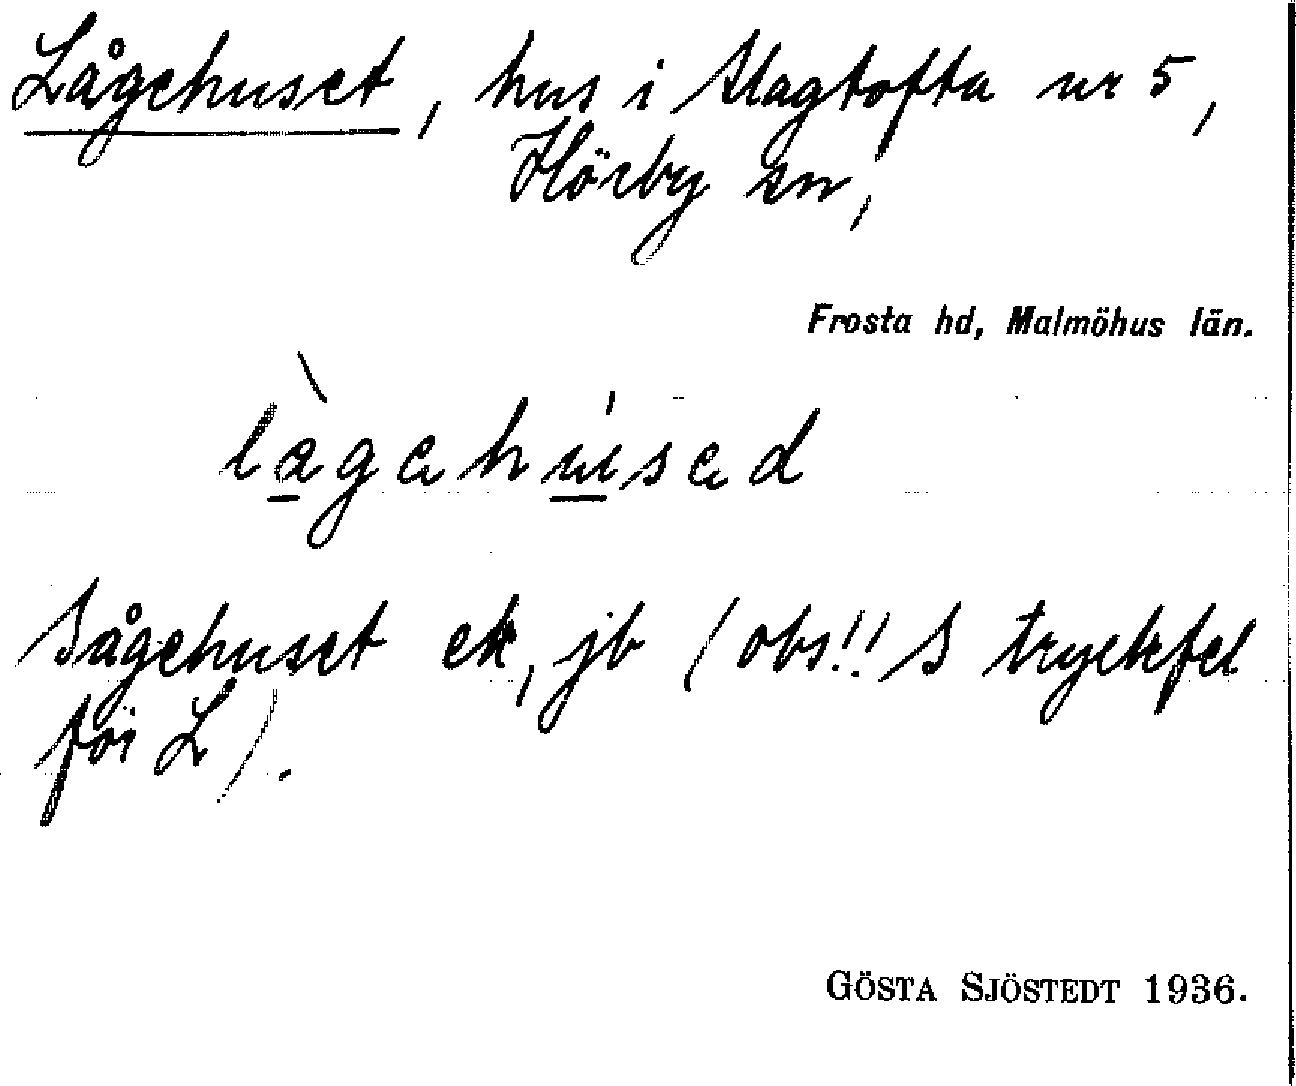 Lågehuset, hus i Slagtofta nr 5,
Hörby sn,
Frosta hd, Malmöhus län.
làgehúsed
Sågehuset ek, jb (obs!! S tryckfel
för L).
GÖSTA SJÖSTEDT 1936.